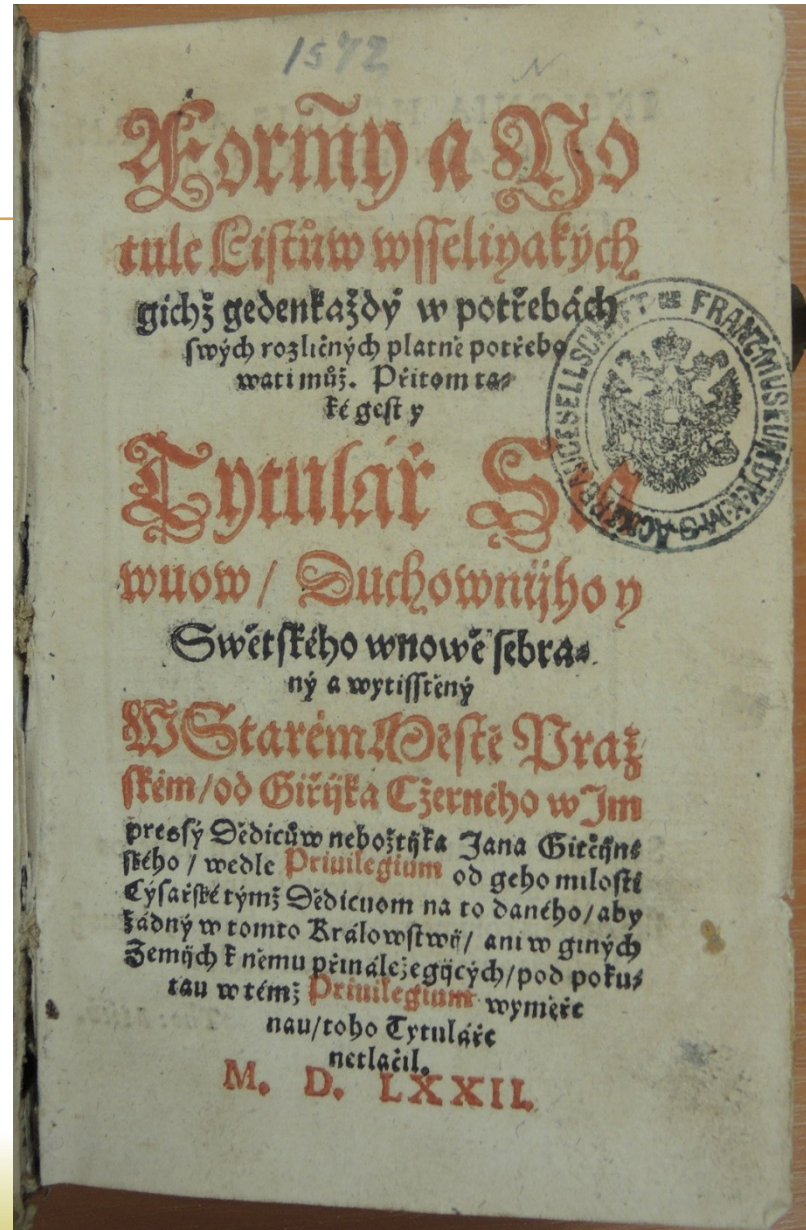 1572
Formy a No
tule Listůw wsseliyakých
gichž gedenkaždý w potřebách
swých rozličných platně potřebo
wati můž. Přitom ta⸗
ké gest y
Tytulář Sta
wuow / Duchownijho y
Swětského wnowě sebra⸗
ný a wytisstěný
W Starém Městě Praž
ském / od Giřijka Cžerného w Im
pressý Dědicůw nebožtijka Jana Gitčijn⸗
ského / wedle Priuilegium od geho milosti
Cýsařské týmž Dědicuom na to daného / aby
žádný w tomto Králowstwij / ani w giných
Zemijch k němu přináležegijcých / pod poku⸗
tau w témž Priuilegium wyměře
nau / toho Tytuláře
netlačil.
M. D. LXXII.
FRANZMUSEUM D. K. K. M. S. ACKERBAUGESELLSCHAFT